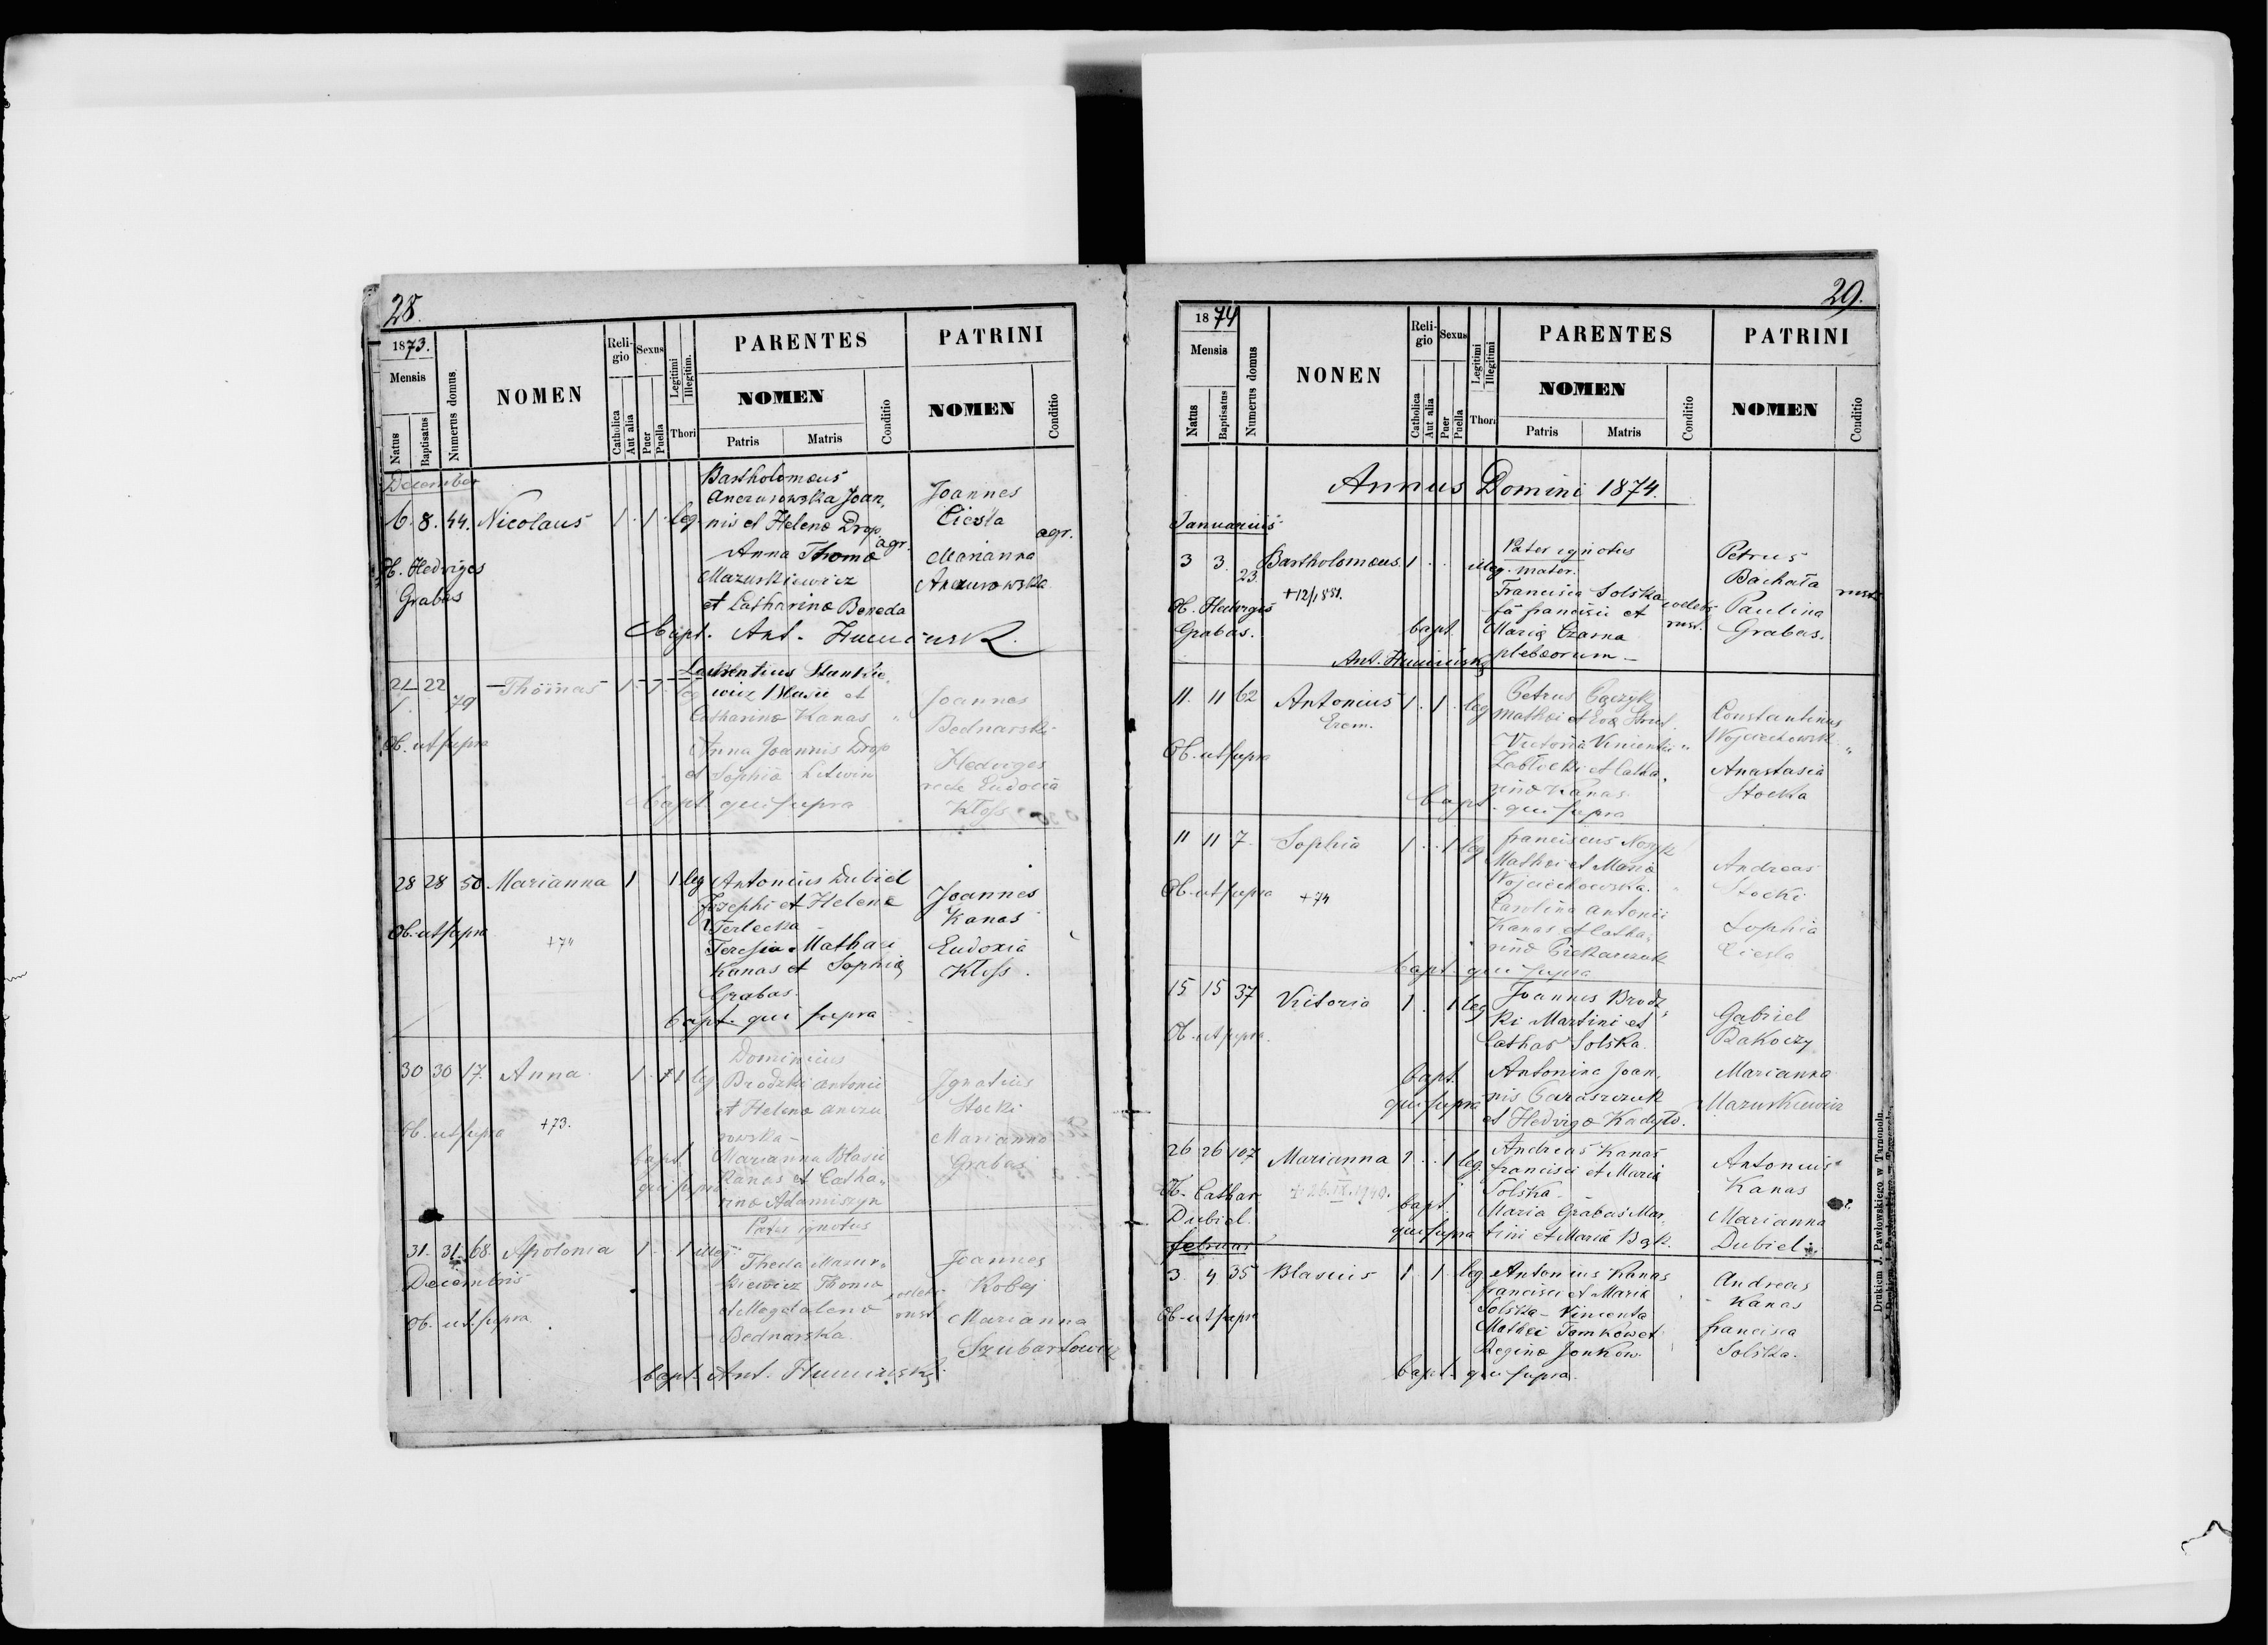 28.
1873.
Mensis
Natus
Baptisatus
Numerus domus
NOMEN
Religio
Catholica
Aut alia
Sexus
Puer
Puella
Legitimi
Illegitim.
Thori
PARENTES
NOMEN
Patris
Matris
Conditio
PATRINI
NOMEN
Conditio
December
6. 8. 44. Nicolaus 1. 1. leg
Ob. Hedviges
Grabas
Bartholomæus
Joan
nis et Helenæ Drop
agr.
Anna Thomæ
Mazurkiewicz
et Catharinæ Bereda
Joannes
Ciesła
agr.
Marianna
bapt. Ant.
21 22 79 Thomas 1. 1. leg
Ob. ut supra
Laurentius Stankie
wicz Blasii et
Catharinæ Kanas
Anna Joannis Drop
et Sophiæ Litwin
bapt. qui supra
Joannes
Bednarski
Hedviges
recte Eudocia
Kłyss
28 28 50 Marianna 1 1 leg
Ob. ut supra
+74
Antonius Dubiel
Josephi et Helenæ
Terlecka
Teresia Mathæi
Kanas et Sophiæ
Grabas.
bapt. qui supra
Joannes
Kanas
Eudoxia
Kłyss.
30 30 17. Anna 1. 1 leg
Ob. ut supra
+73.
Dominicus
Brodzki Antonii
et Helenæ
Marianna Blasii
Kanas et Catha
rinæ Adamiszyn
bapt.
qui supra
Ignatius
Stocki
Marianna
Grabas
31. 31. 68. Apolonia 1. 1 illeg.
Decembris
Ob. ut supra
Pater ignotus
Thecla Mazur
kiewicz Thomæ
et Magdalenæ
Bednarska
coelebs
rust.
Joannes
Kobej
Marianna
Szubartowicz
bapt. Ant.
29.
1874
Mensis
Natus
Baptisatus
Numerus domus
NONEN
Religio
Catholica
Aut alia
Sexus
Puer
Puella
Legitimi
Illegitimi
Thori
PARENTES
NOMEN
Patris
Matris
Conditio
PATRINI
NOMEN
Conditio
Annus Domini 1874.
Januarius
3 3. 23. Bartholomæus. 1. illeg.
+12/1881.
Ob. Hedviges
Grabas.
Pater ignotus
mater.
Francisca Solska
fa francisci et
Mariæ Czarna
plebæorum
coelebs
rust.
bapt.
Ant.
Petrus
Bachała
Paulina
Grabas.
rust.
11. 11 62 Antonius 1. 1. leg
Ob. ut supra
Petrus
Mathæi et Evæ
Victoria Vincentii
Zabłocki et Catha
rinæ Kanas
bapt. qui supra
Constantinus
Wojciechowski
Anastasia
Stocka
11 11 7. Sophia 1. 1 leg
Ob. ut supra
+74
franciscus
Mathæi et Mariæ
Wojciechowska.
Carolina Antonii
Kanas et Catha
rinæ Piekarczuk
bapt. qui supra
Andreas
Stocki
Sophia
Ciesla
15 15 37 Victoria 1. 1 leg
Ob. ut supra.
Joannes Brodz
ki Martini et
Cathar Solska.
Antonina Joan
nis Tarasczuk
et Hedvigæ
bapt.
qui supra
Gabriel
Rakoczy
Marianna
Mazurkiewicz
26 26 107 Marianna 1. 1 leg.
Ob. Cathar
Dubiel.
Andreas Kanas
francisci et Mariæ
Solska.
Maria Grabas Mar
tini et Mariæ Bąk.
bapt.
qui supra
Antonius
Kanas
Marianna
Dubiel.
februar
3. 4 35 Blasius 1. 1. leg
Ob. ut supra
Antonius Kanas
francisci et Mariæ
Solska - Vincenta
Mathæi Tomków et
Reginæ Jonkow.
bapt. qui supra.
Andreas
Kanas
francisca
Solska.
Drukiem J. Pawłowskiego w Tarnopolu.